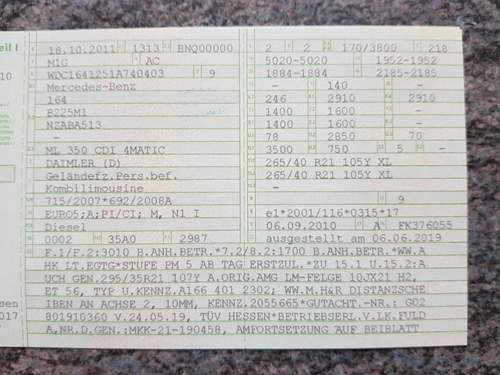 eil I
18.10.2011 1313 BNQ00000 2 2 170/3800 218
M1G AC 5020-5020 1952-1952
WDC1641251A740403 9 1884-1884 2185-2185
Mercedes-Benz - 140 -
164 246 2910 2910
B225M1 1400 1600 -
NZABA513 1400 1600 -
- 78 2850 70
ML 350 CDI 4MATIC 3500 750 5 -
DAIMLER (D) 265/40 R21 105Y XL
Geländefz.Pers.bef. 265/40 R21 105Y XL
Kombilimousine -
715/2007*692/2008A 9
EURO5;A;PI/CI; M, N1 I e1*2001/116*0315*17
Diesel 06.09.2010 A FK376055
0002 35A0 2987 ausgestellt am 06.06.2019
F.1/F.2:3010 B.ANH.BETR.*7.2/8.2:1700 B.ANH.BETR.*WW.A
HK LT.EGTG*STUFE PM 5 AB TAG ERSTZUL.*ZU 15.1 U.15.2:A
UCH GEN.295/35R21 107Y A.ORIG.AMG LM-FELGE 10JX21 H2,
ET 56, TYP U.KENNZ.A166 401 2302; WW.M.H&R DISTANZSCHE
IBEN AN ACHSE 2, 10MM, KENNZ.2055665*GUTACHT.-NR.: G02
801910360 V.24.05.19, TÜV HESSEN*BETRIEBSERL.V.LK.FULD
A,NR.D.GEN.:MKK-21-190458, AMFORTSETZUNG AUF BEIBLATT